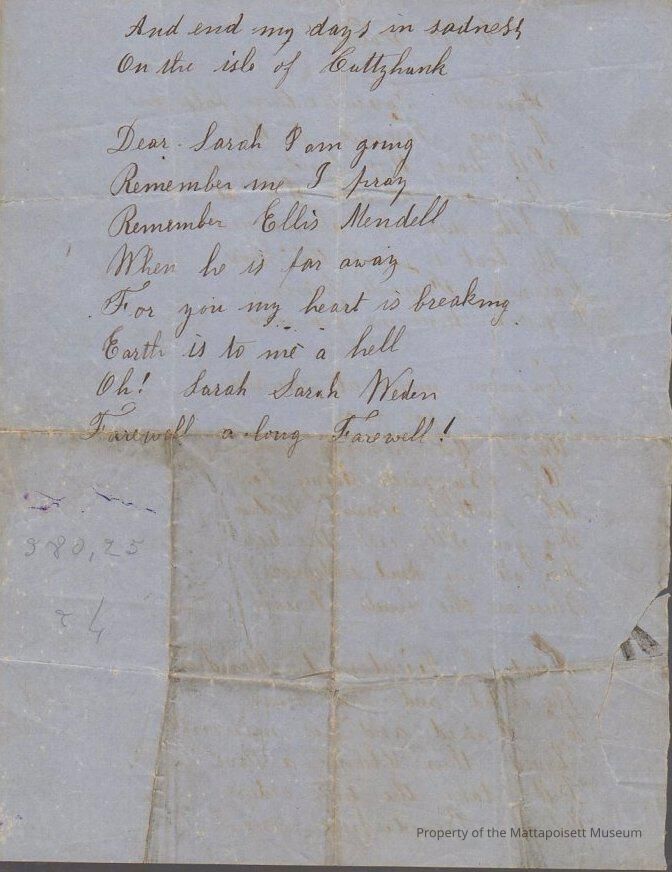 And end my days in sadness
On the isle of Cuttyhunk
Dear Sarah I am going
Remember me I pray
Remember Ellis Mendell
When he is far away
For you my heart is breaking
Earth is to me a hell
Oh! Sarah Sarah Weden
Farewell a long Farewell!
380,25
24
Property of the Mattapoisett Museum